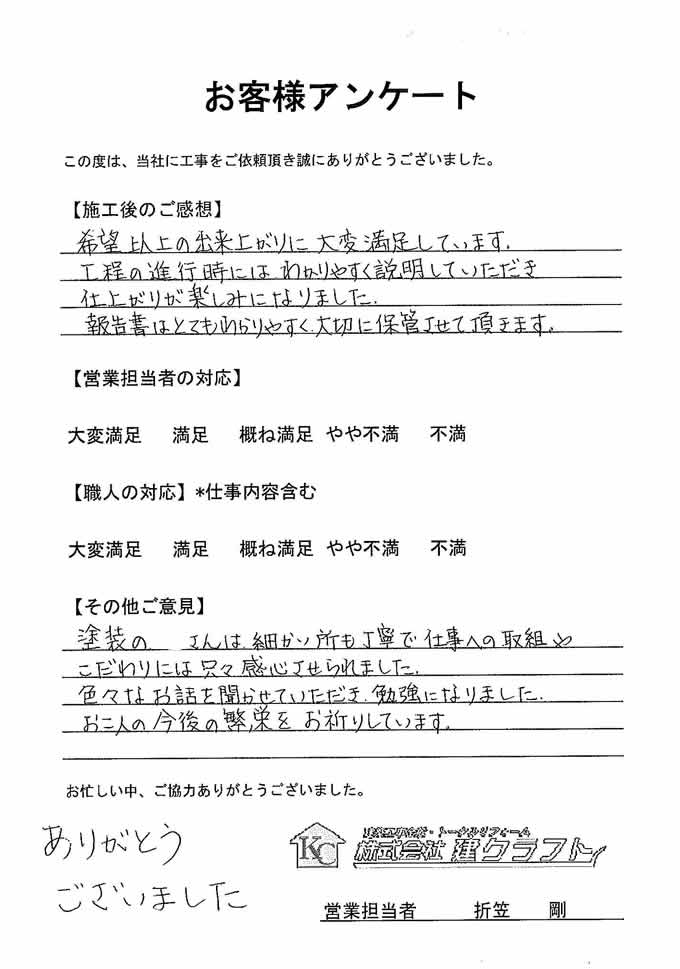 お客様アンケート
この度は、当社に工事をご依頼頂き誠にありがとうございました。
【施工後のご感想】
希望以上の出来上がりに大変満足しています。
工程の進行時にはわかりやすく説明していただき
仕上がりが楽しみになりました。
報告書はとてもわかりやすく、大切に保管させて頂きます。
【営業担当者の対応】
大変満足 満足 概ね満足 やや不満 不満
【職人の対応】*仕事内容含む
大変満足 満足 概ね満足 やや不満 不満
【その他ご意見】
塗装の さんは、細かい所も丁寧で仕事への取組や
こだわりには只々感心させられました。
色々なお話を聞かせていただき、勉強になりました。
お二人の今後の繁栄をお祈りしています。
お忙しい中、ご協力ありがとうございました。
ありがとう
ございました
KC
トータルリフォーム
株式会社 建クラフト
営業担当者 折笠 剛